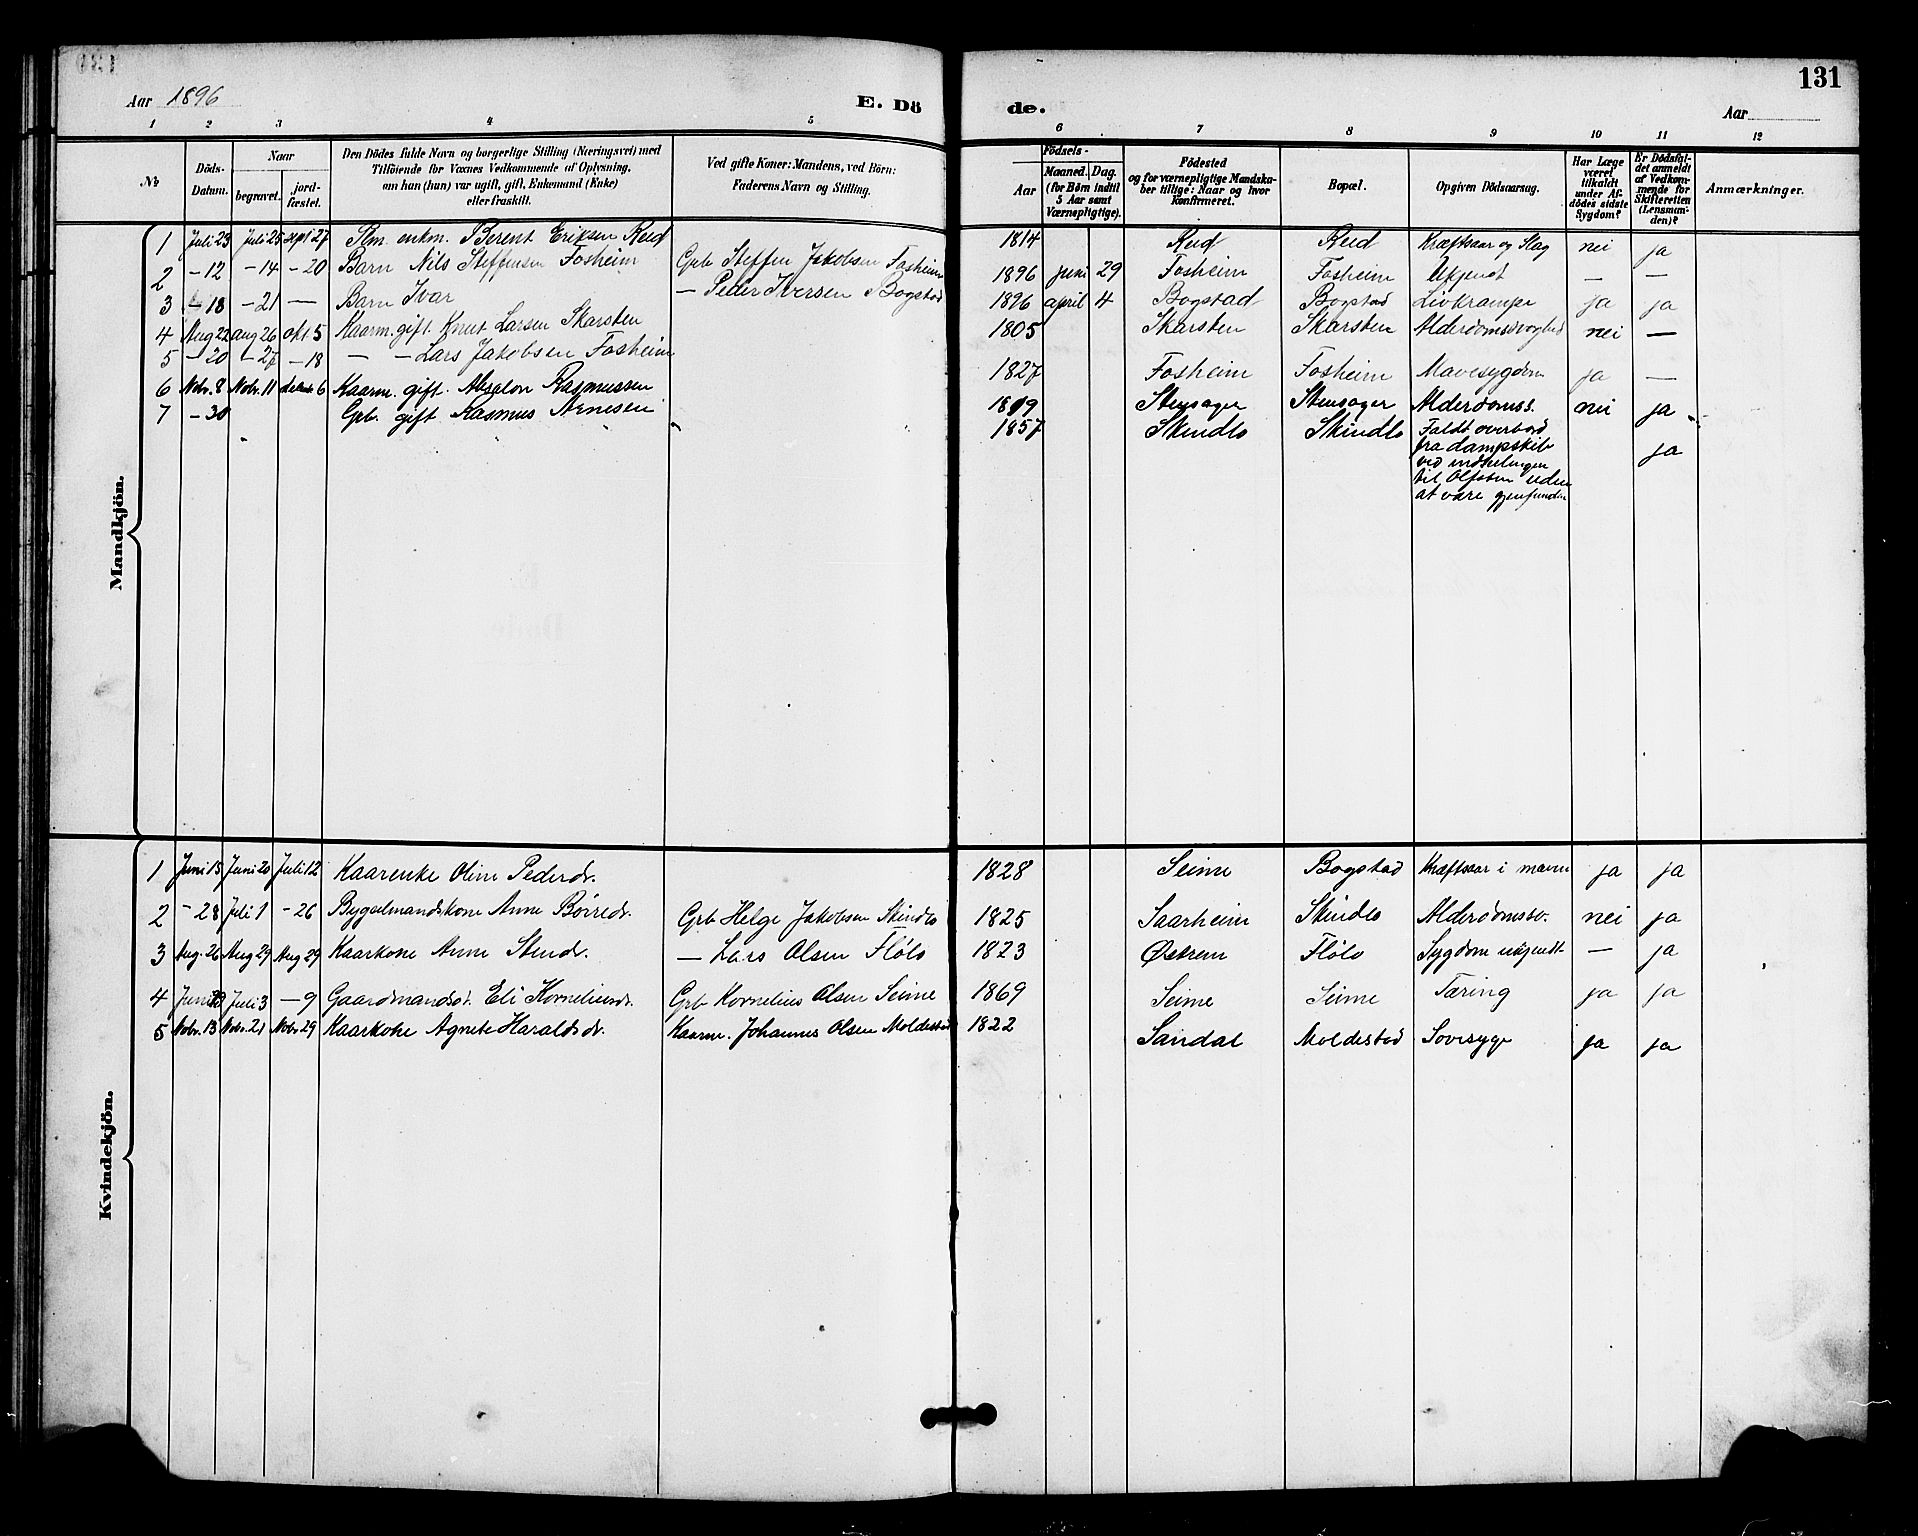 131
Aar 1896
E. Dö
de.
Aar
1 2 3 4 5 6 7 8 9 10 11 12
No
Döds-
Datum.
Naar
begravet.
jord-
fæstet.
Den Dödes fulde Navn og borgerlige Stilling (Næringsvei) med
Tilföiende for Voxnes Vedkommende af Oplysning,
om han (hun) var ugift, gift, Enkemand (Enke)
eller fraskilt.
Ved gifte Koner: Mandens, ved Börn:
Faderens Navn og Stilling.
Födsels-
Aar
Maaned. Dag.
(for Börn indtil
5 Aar samt
Værnepligtige).
Födested
og for værnepligtige Mandska-
ber tillige: Naar og hvor
konfirmeret.
Bopæl.
Opgiven Dödsaarsag.
Har Læge
været
tilkaldt
under Af-
dödes sidste
Sygdom?
Er Dödsfal-
det anmeldt
af Vedkom-
mende for
Skifteretten
(Lensman-
den)?
Anmærkninger.
Mandkjön.
1 Juli 23 Juli 25 sept 27 Slm. enkm. Berent Eriksen Reed 1814 Reed Reed Kræftsaar og Slag nei ja
2 - 12 - 14 - 20 Barn Nils Steffensen Fosheim Grb Steffen Jakobsen Fosheim 1896 juni 29 Fosheim Fosheim Ukjendt — —
3 - 18 - 21 — Barn Ivar — Peder Iversen Bogstad 1896 april 4 Bogstad Bogstad Livkrampe ja ja
4 Aug 22 aug 26 okt 5 Kaarm. gift. Knut Larsen Skarsten 1805 Skarsten Skarsten Alderdomssvaghed nei —
5 - 20 - 27 - 18 — — Lars Jakobsen Fosheim 1827 Fosheim Fosheim Mavesygdom ja —
6 Nobr. 8 Nobr. 11 decbr 6 Kaarm. gift. Absalon Rasmussen 1819 Stensager Stensager Alderdomss. nei ja
7 - 30 Grb. gift Rasmus Arnesen 1857 Skindlo Skindlo Faldt overbord
fra dampskib
ved indseilingen
til Olden uden
at være gjenfunden
ja
Kvindekjön.
1 Juni 15 Juni 20 Juli 12 Kaarenke Oline Pedersdr. 1828 Seime Bogstad Kræftsaar i maven ja ja
2 - 28 Juli 1 - 26 Bygselmandskone Anne Børresdr. Grb Helge Jakobsen Skindlo 1825 Saarheim Skindlo Alderdomssv. nei ja
3 Aug. 26 Aug 29 Aug 29 Kaarkone Anne Stensdr. — Lars Olsen Flølo 1823 Østrem Flølo Sygdom ukjendt — ja
4 Juni Juli 3 — 9 Gaardmandsdt. Eli Korneliusdr. Grb Kornelius Olsen Seime 1869 Seime Seime Tæring ja ja
5 Nobr. 13 Nobr. 21 Nobr 29 Kaarkone Agnete Haraldsdr. Kaarm. Johannes Olsen Moldestad 1822 Sandal Moldestad Sovesyge ja ja